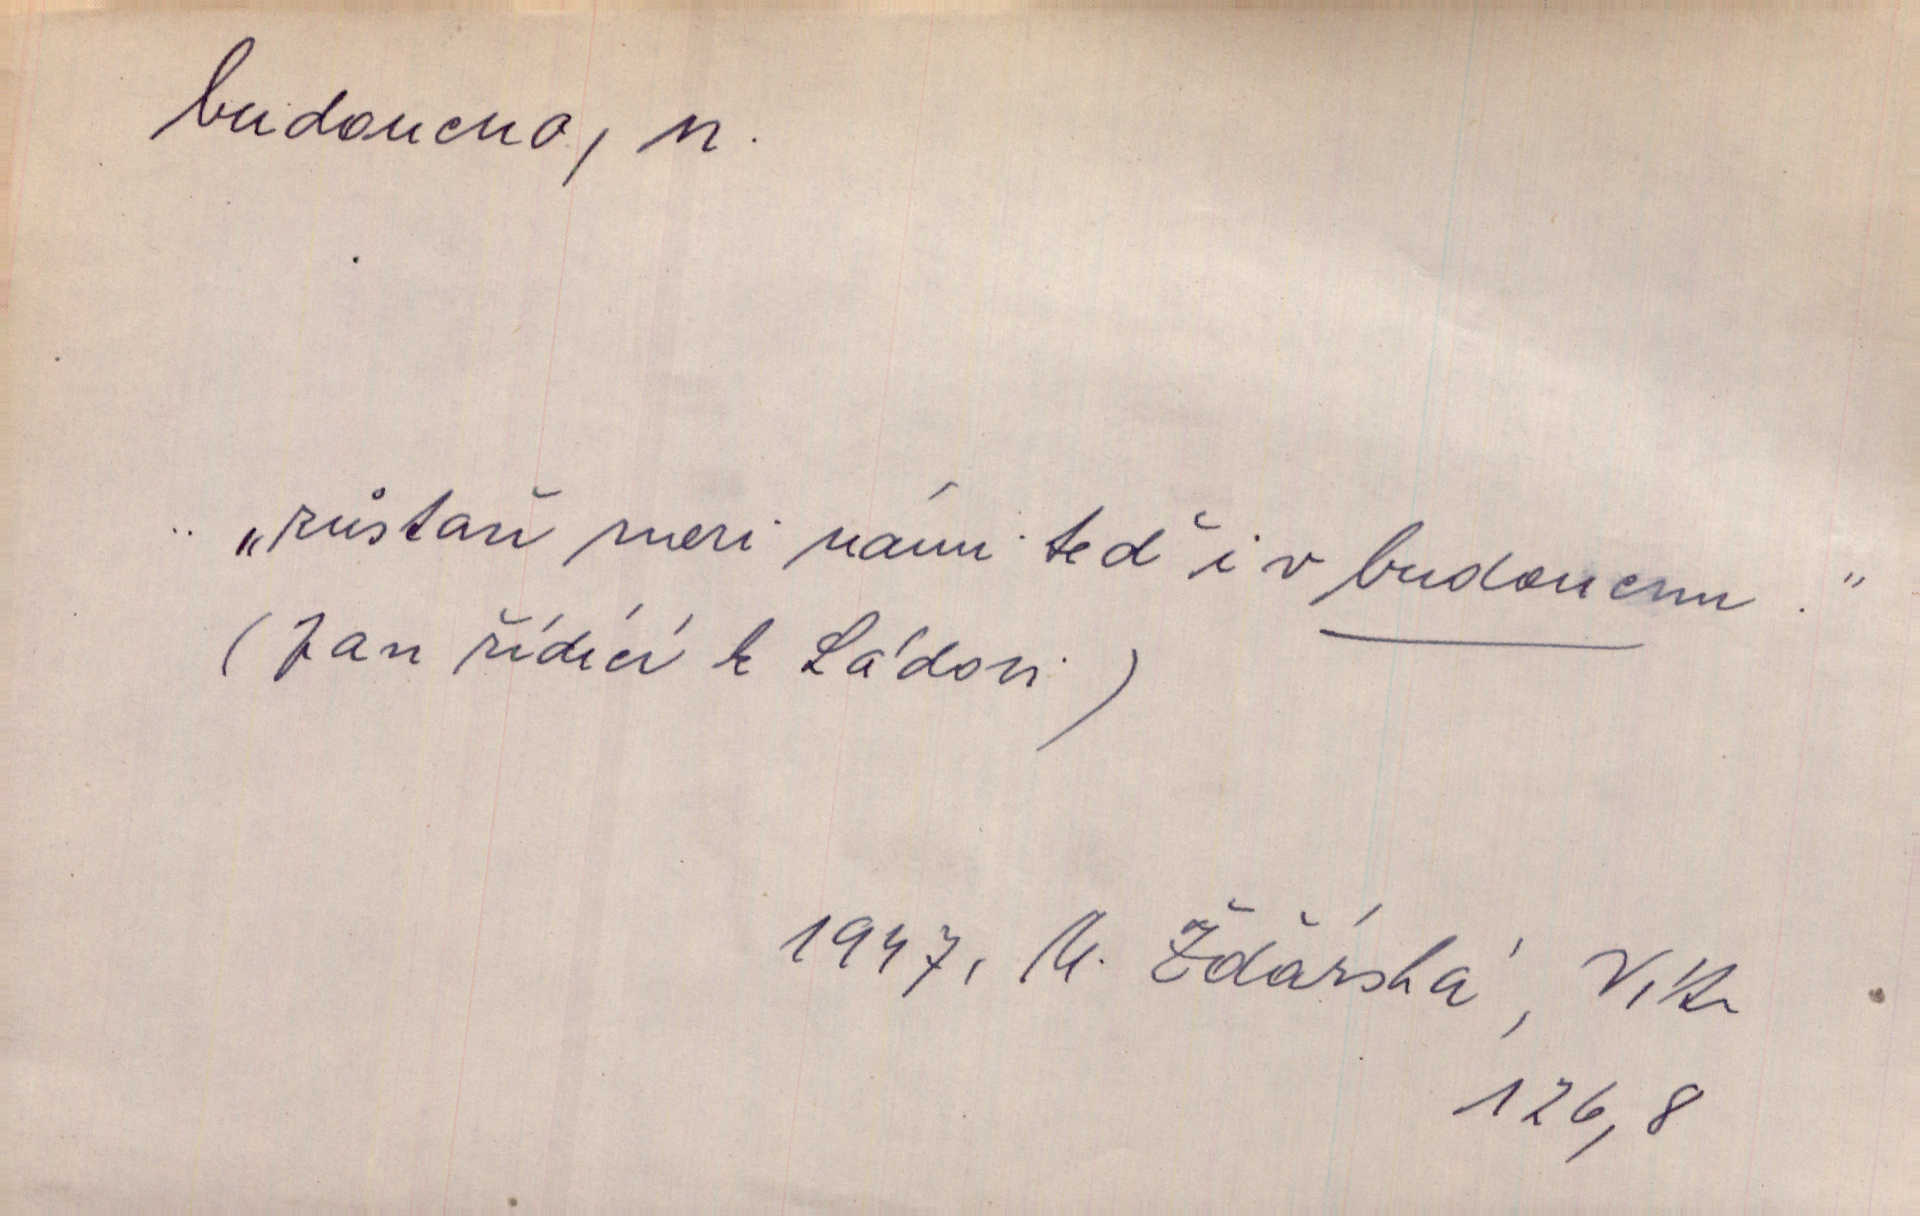 budoucno, n.
.. „zůstaň mezi námi teď i v budoucnu."
(pan řídící k Láďovi)
1947, M. Žďárská,
126,8